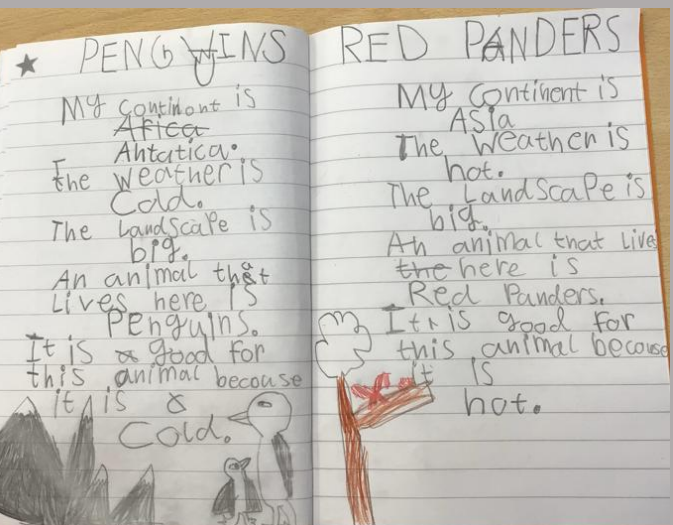 PENGWINS
My continont is
Africa
Antatica.
The weather is
Cold.
The Landscape is
big.
An animal that
Lives here is
PEnguins.
It is a good for
this animal becouse
it is a
Cold.
RED PANDERS
My Continent is
Asia
The Weather is
hot.
The LandScape is
big.
An animal that live
the here is
Red Panders.
It is good for
this animal becouse
it is
hot.